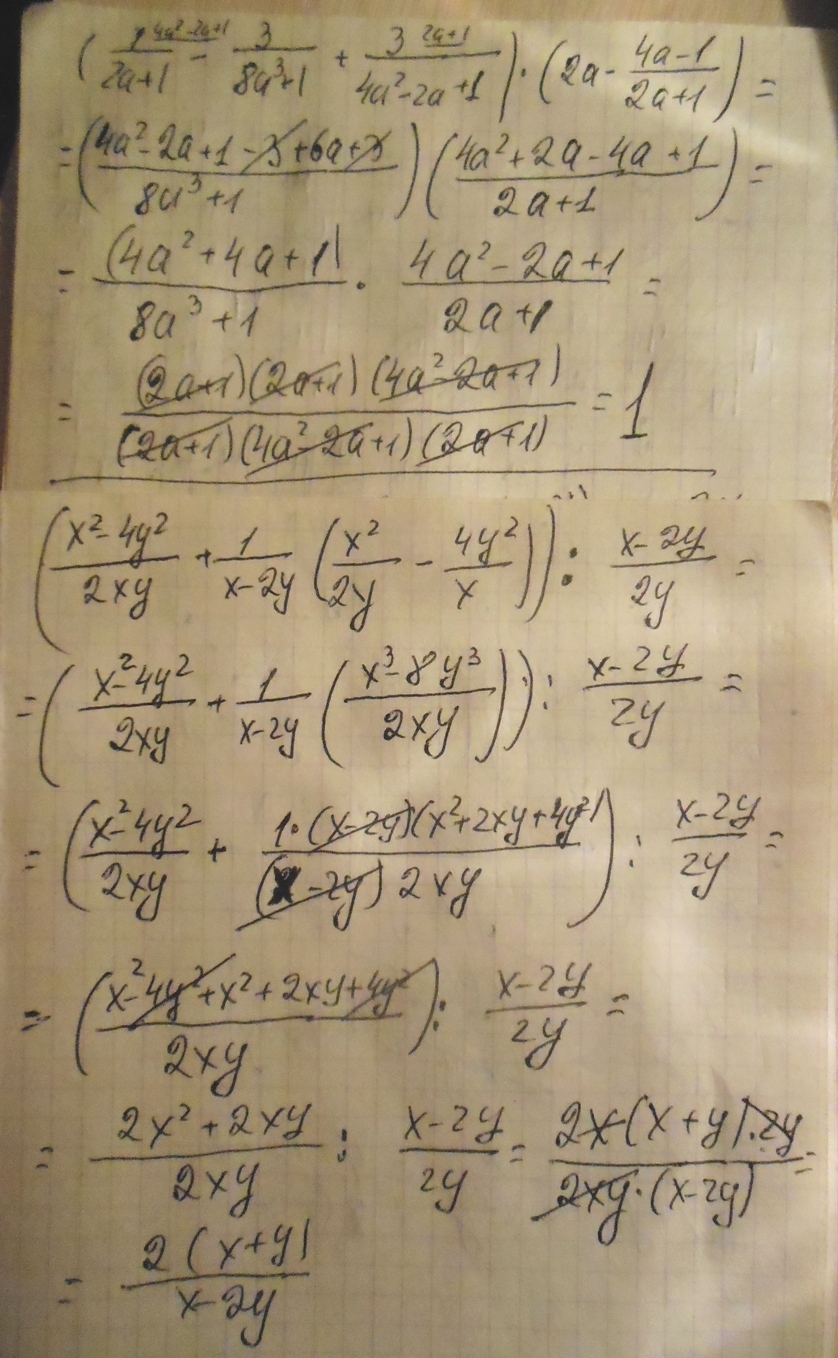 ( 1 4a²-2a+1/2a+1 - 3/8a³+1 + 3 2a+1/4a²-2a+1 ) · (2a - 4a-1/2a+1) =
= (4a²-2a+1-3+6a+3/8a³+1) (4a²+2a-4a+1/2a+1) =
= (4a²+4a+1)/8a³+1 · 4a²-2a+1/2a+1 =
= (2a+1)(2a+1)(4a²-2a+1)/(2a+1)(4a²-2a+1)(2a+1) = 1
(x²-4y²/2xy + 1/x-2y (x²/2y - 4y²/x)) : x-2y/2y =
= (x²-4y²/2xy + 1/x-2y (x³-8y³/2xy)) : x-2y/2y =
= (x²-4y²/2xy + 1·(x-2y)(x²+2xy+4y²)/(x-2y) 2xy) : x-2y/2y =
= (x²-4y²+x²+2xy+4y²/2xy) : x-2y/2y =
= 2x²+2xy/2xy : x-2y/2y = 2x(x+y)·2y/2xy·(x-2y) =
= 2(x+y)/x-2y